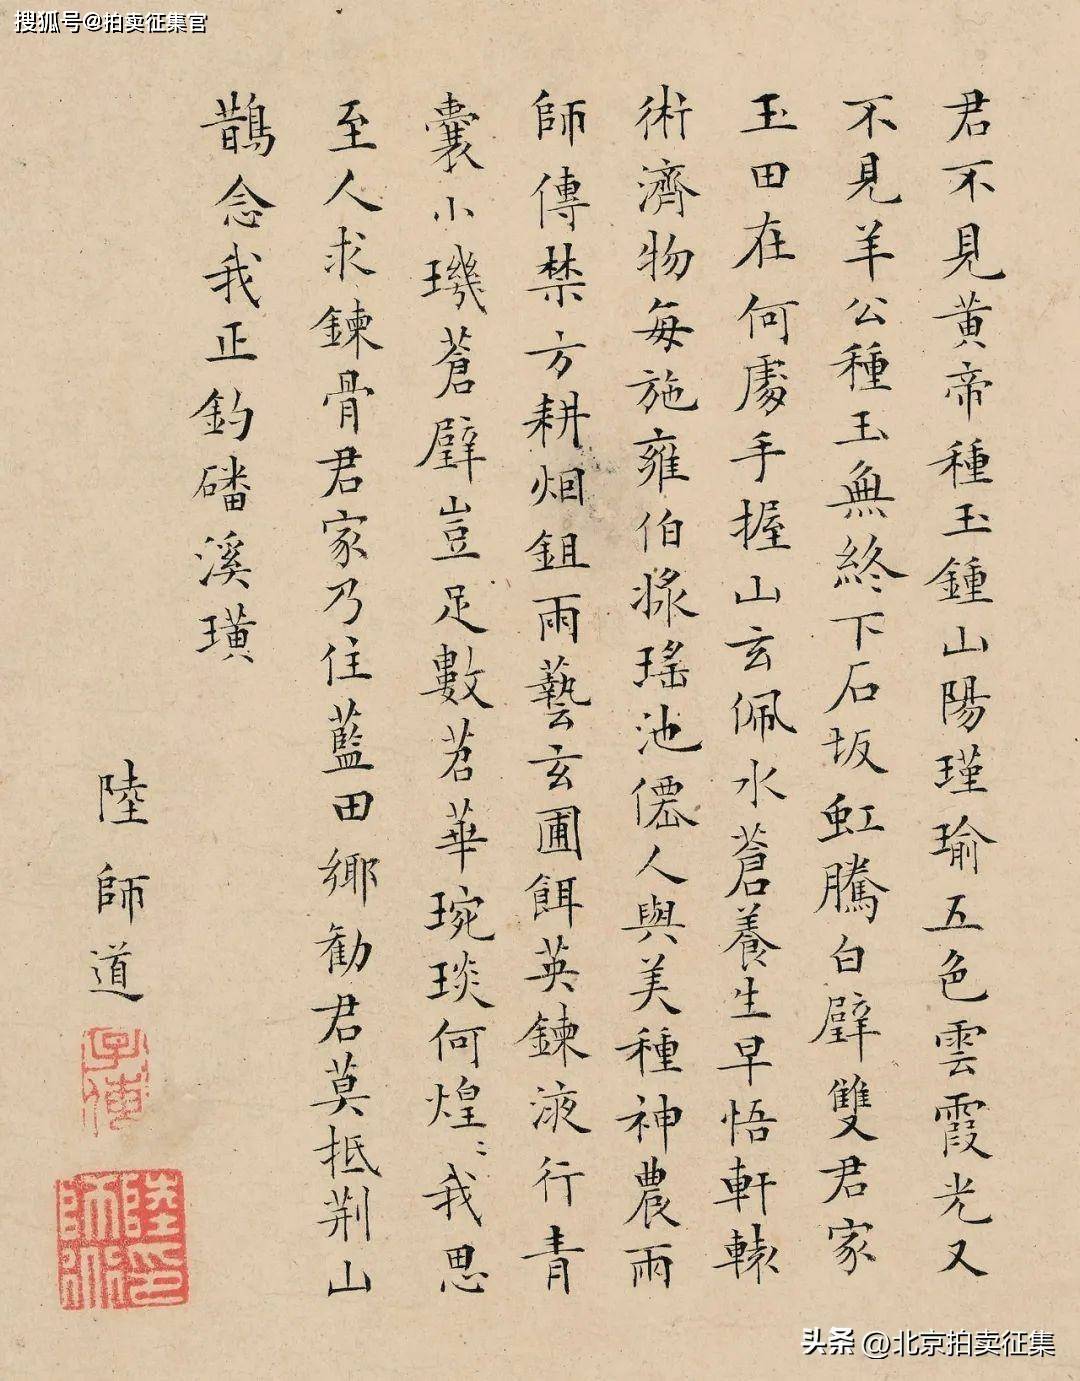 搜狐号@拍卖征集官
君不見黃帝種玉鍾山陽瑾瑜五色雲霞光又
不見羊公種玉無終下石坂虹騰白璧雙君家
玉田在何處手握山玄佩水蒼養生早悟軒轅
術濟物每施雍伯漿瑤池僊人與美種神農雨
師傳禁方耕烟鉏雨藝玄圃餌英鍊液行青
囊小璣蒼璧豈足數苕華琬琰何煌〻我思
至人求鍊骨君家乃住藍田鄉勸君莫抵荆山
鵲念我正釣磻溪璜
陸師道
子傳
陸師道印
头条 @北京拍卖征集